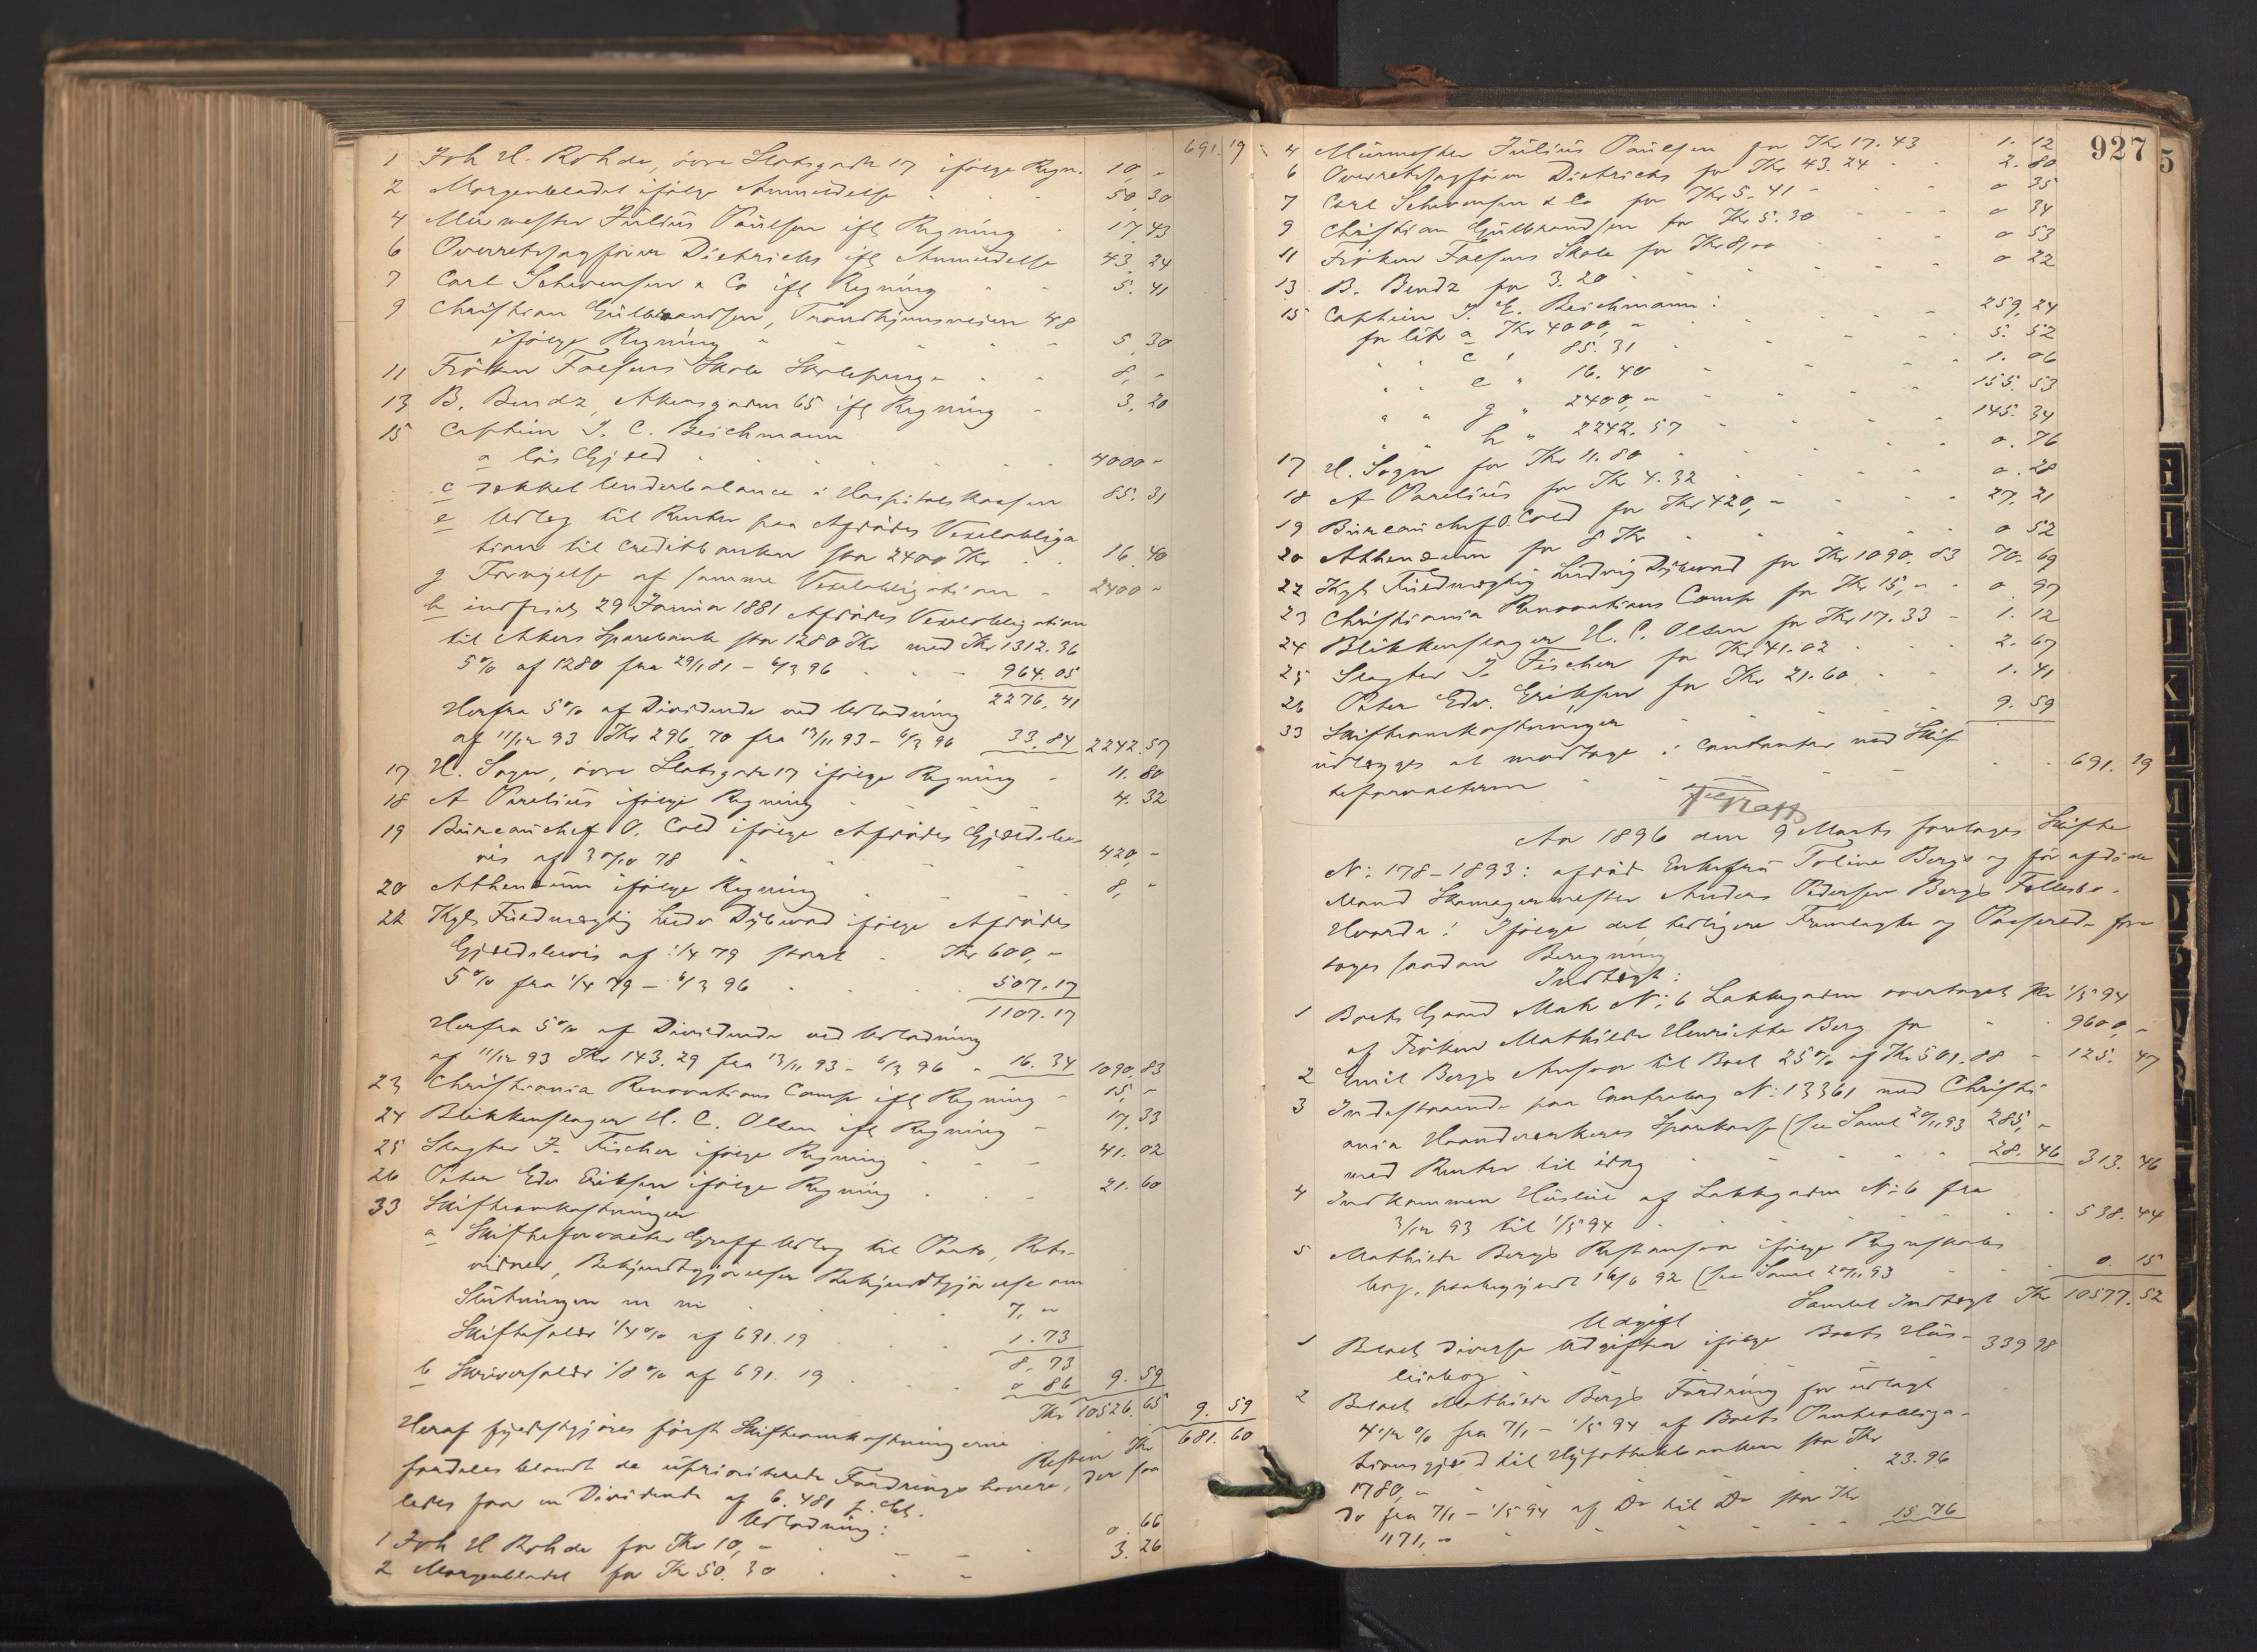 691. 19
1 Joh H. Rohde, övre Slotsgade 17 ifölge Regn. 10, "
2 Morgenbladet ifölge Anmeldelse 50, 30
4 Murmester Julius Paulsen ifl Regning 17, 43
6 Overretssagförer Dietrichs ifl Anmeldelse 43. 24
7 Carl Schwensen & Co ifl Regning 5. 41
9 Christian Gulbrandsen, Trondhjemsveien 48
ifölge Regning 5, 30
11 Fröken Falsens Skole Skolepenge 8, "
13 B. Bendz, Akersgaden 65 ifl Regning 3, 20
15 Captein J. C. Beichmann
a lös Gjæld 4000 "
c dækket Underbalance i Hospitalskassen 85. 31
e Udlæg til Renter paa Afdödes Vexelobliga
tion til Creditbanken stor 2400 Kr 16, 40
g Fornyelse af samme Vexelobligation 2400 "
h indfriet 29 Januar 1881 Afdödes Vexelobligation
til Akers Sparebank stor 1280 Kr med Kr 1312. 36
5% af 1280 fra 29/1 81 - 6/3 96 964. 05
2276. 41
Herfra 5% af Dividende ved Udlodning
af 11/12 93 Kr 296, 70 fra 12/11 93 - 6/3 96 33. 84 2242. 57
17 H. Sogn, övre Slotsgade 17 ifölge Regning 11. 80
18 A Parelius ifölge Regning 4. 32
19 Bureauchef O. Cold ifölge Afdödes Gjældsbe
vis af 30/10 78 420, "
20 Athenæum ifölge Regning 8, "
22 Kgl. Fuldmægtig Ludv Dybwad ifölge Afdödes
Gjældsbevis af 1/4 79 stort Kr 600, "
5% fra 1/4 79 - 6/3 96 507. 17
1107. 17
Herfra 5% af Dividende ved Udlodning
af 11/12 93 Kr 143. 29 fra 13/11 93 - 6/3 96 16. 34 1090, 83
23 Christiania Renovations Comp ifl Regning 15, "
24 Blikkenslager H. C. Olsen ifl Regning 17. 33
25 Slagter J. Fischer ifölge Regning 41. 02
26 Peter Edv Eriksen ifölge Regning 21. 60
33 Skifteomkostninger
a Skifteforvalter Graff Udlæg til Porto, Rets-
vidner, Bekjendtgjörelser Bekjendtgjörelse om
Slutningen m m 7, "
Skiftesalær 1/4% af 691. 19 1. 73
8, 73
b Skriversalær 1/8% af 691. 19 0 86 9. 59
Kr 10526. 65 9. 59
Heraf fyldestgjöres först Skifteomkostningerne
Resten Kr 681. 60
fordeles blandt de uprioriterede Fordringshavere, der saa
ledes faar en Dividende af 6. 481 p. Ct.
Udlodning:
1 Joh H Rohde for Kr 10, " 0. 66
2 Morgenbladet for Kr 50. 30 3. 26
927
5
4 Murmester Julius Paulsen for Kr 17. 43 1. 12
6 Overretssagförer Dietrichs for Kr 43. 24 2. 80
7 Carl Schwensen & Co for Kr 5. 41 0 35
9 Christian Gulbrandsen for Kr 5. 30 0 34
11 Fröken Falsens Skole for Kr 8, 00 0 53
13 B. Bendz for 3. 20 0 22
15 Captein J. C. Beichmann:
for litr a Kr 4000, " 259, 24
c " 85. 31 5. 52
" " e " 16. 40 1. 06
" " g " 2400, " 155. 53
" " h " 2242. 57 145. 34
17 H. Sogn for Kr 11. 80 0. 76
18 A Parelius for Kr 4. 32 0. 28
19 Bureauchef O. Cold for Kr 420, " 27. 21
20 Athenæum for 8 Kr 0 52
22 Kgl. Fuldmægtig Ludvig Dybwad for Kr 1090. 83 70. 69
23 Christiania Renovations Comp for Kr 15, " 0. 97
24 Blikkenslager H. C. Olsen for Kr 17. 33 1. 12
25 Slagter J. Fischer for Kr 41. 02 2. 67
26 Peter Edv. Eriksen for Kr 21. 60 1. 41
33 Skifteomkostninger 9. 59
udlægges at modtage i Contanter ved Skif
teforvalteren 691. 19
Graff
Aar 1896 den 9 Marts foretages Skifte
N: 178-1893: afdöd Enkefru Toline Bergs og för afdöde
Mand Skomagermester Anders Pedersen Bergs Fællesbo.
Hvorda! Ifölge det tidligere Fremlagte og Passerede fore
toges saadan Beregning
Indtægt:
1 Boets Gaard Matr N: 6 Lakkegaden overtaget pr 1/5 94
af Fröken Mathilde Henriette Berg for 9600, "
2 Emil Bergs Ansvar til Boet 25% af Kr 501. 88 125. 47
3 Indestaaende paa Contrabog N: 13361 med Christi
ania Haandværkeres Sparekasse (see Saml 20/11 93 285, "
med Renter til idag 28. 46 313. 46
4 Indkommen Husleie af Lakkegaden N: 6 fra
3/12 93 til 1/5 94 538. 44
5 Mathilde Bergs Restansvar ifölge Regnskabs
bog, paabegyndt 16/6 92 (see Saml 20/11 93 0. 15
Samlet Indtægt Kr 10577. 52
Udgift
1 Betalt diverse Udgifter ifölge Boets Hus- 339 98
leiebog
2 Betalt Mathilde Bergs Fordring for udlagt
4 1/2 % fra 7/1 - 1/5 94 af Boets Pantobliga-
tionsgjæld til Hypothekbanken stor Kr
1780, " 23. 96
Do fra 7/1 - 1/5 94 af Do til Do stor Kr
1171, " 15. 76
G
H
I
J
K
L
M
N
O
P